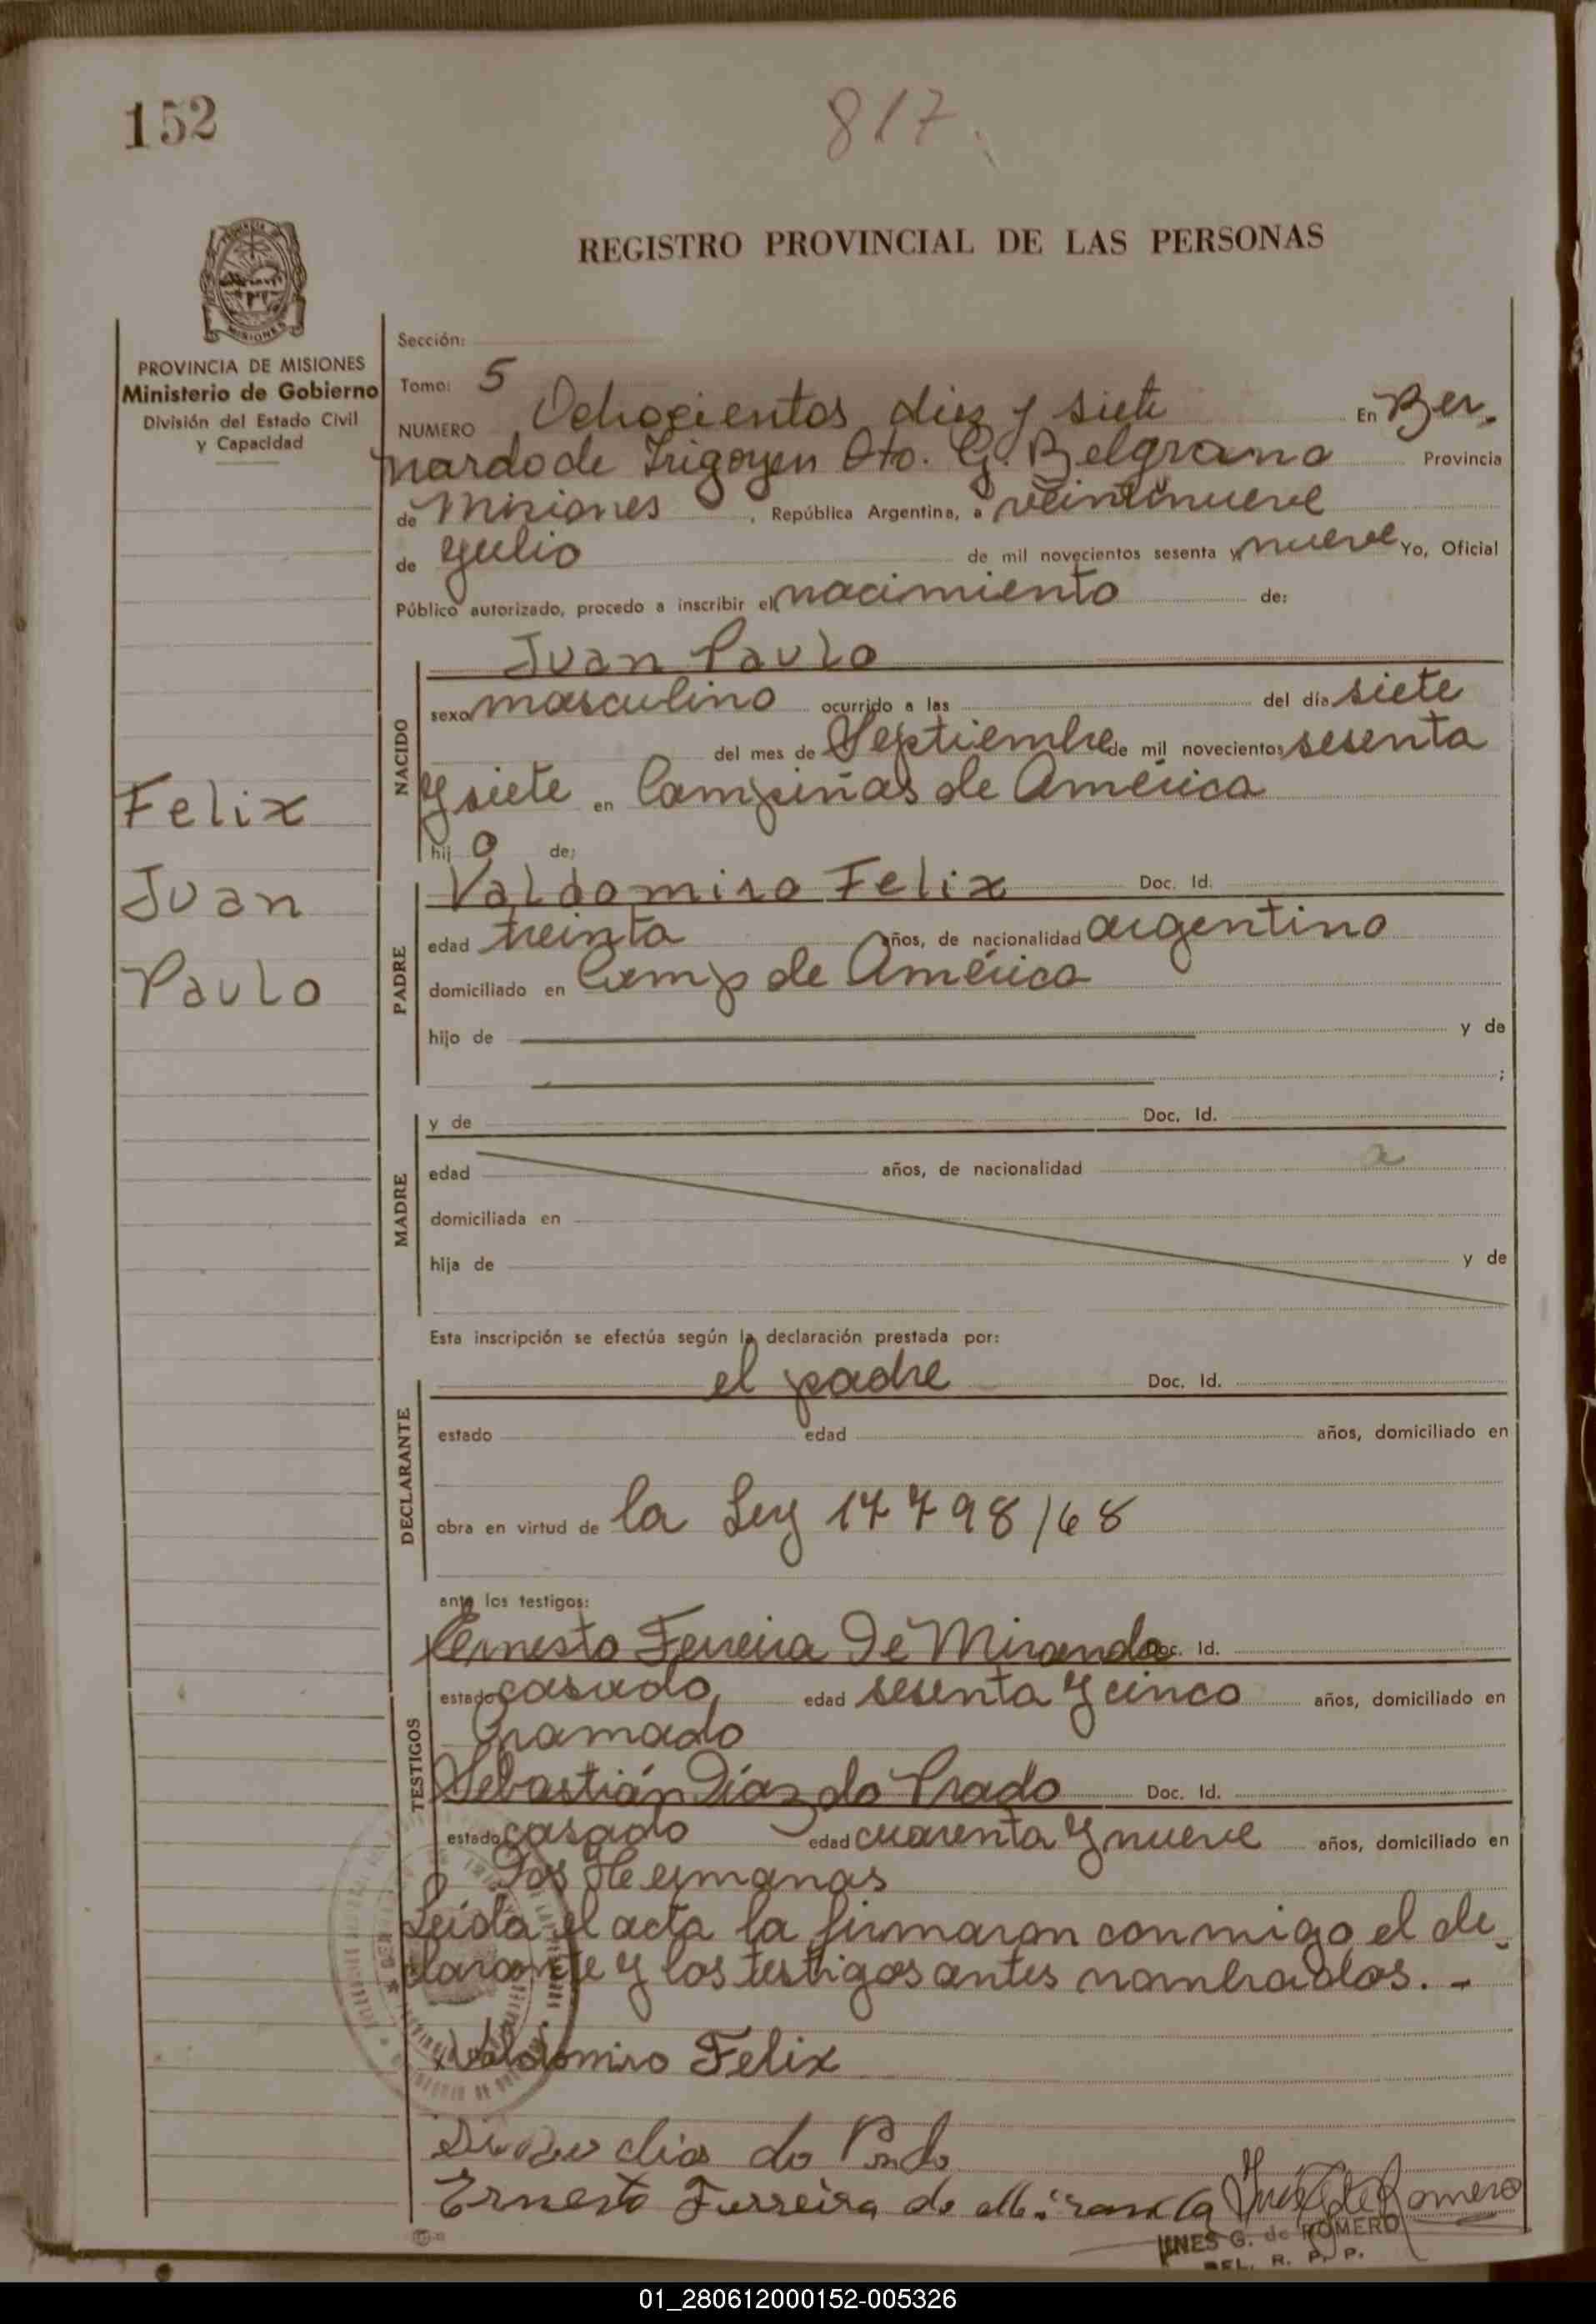 152
817.
REGISTRO PROVINCIAL DE LAS PERSONAS
MISIONES
PROVINCIA DE MISIONES
Ministerio de Gobierno
División del Estado Civil
y Capacidad
Sección:
Tomo: 5
NUMERO Ochocientos diez y siete En Ber-
nardo de Irigoyen Dto. G. Belgrano Provincia
de Misiones, República Argentina, a veintinueve
de Julio de mil novecientos sesenta y nueve Yo, Oficial
Público autorizado, procedo a inscribir el nacimiento de:
NACIDO
Juan Paulo
sexo masculino ocurrido a las del día siete
del mes de Septiembre de mil novecientos sesenta
y siete en Campiñas de América
hijo de;
Felix
Juan
Paulo
PADRE
Valdomiro Felix Doc. Id.
edad treinta años, de nacionalidad argentino
domiciliado en Camp de América
hijo de y de
;
MADRE
y de Doc. Id.
edad años, de nacionalidad a
domiciliada en
hija de y de
Esta inscripción se efectúa según la declaración prestada por:
DECLARANTE
el padre Doc. Id.
estado edad años, domiciliado en
obra en virtud de la Ley 17798/68
ante los testigos:
TESTIGOS
Ernesto Ferreira De Miranda Doc. Id.
estado casado, edad sesenta y cinco años, domiciliado en
Gramado
Sebastián Díaz do Prado Doc. Id.
estado casado edad cuarenta y nueve años, domiciliado en
Dos Hermanas
Leída el acta la firmaron conmigo el de-
clarante y los testigos antes nombrados. -
Valdomiro Felix
dias do Prado
Ernesto Ferreira de Miranda Inés G de Romero
INES G. de ROMERO
DEL. R. P. P.
01_280612000152-005326